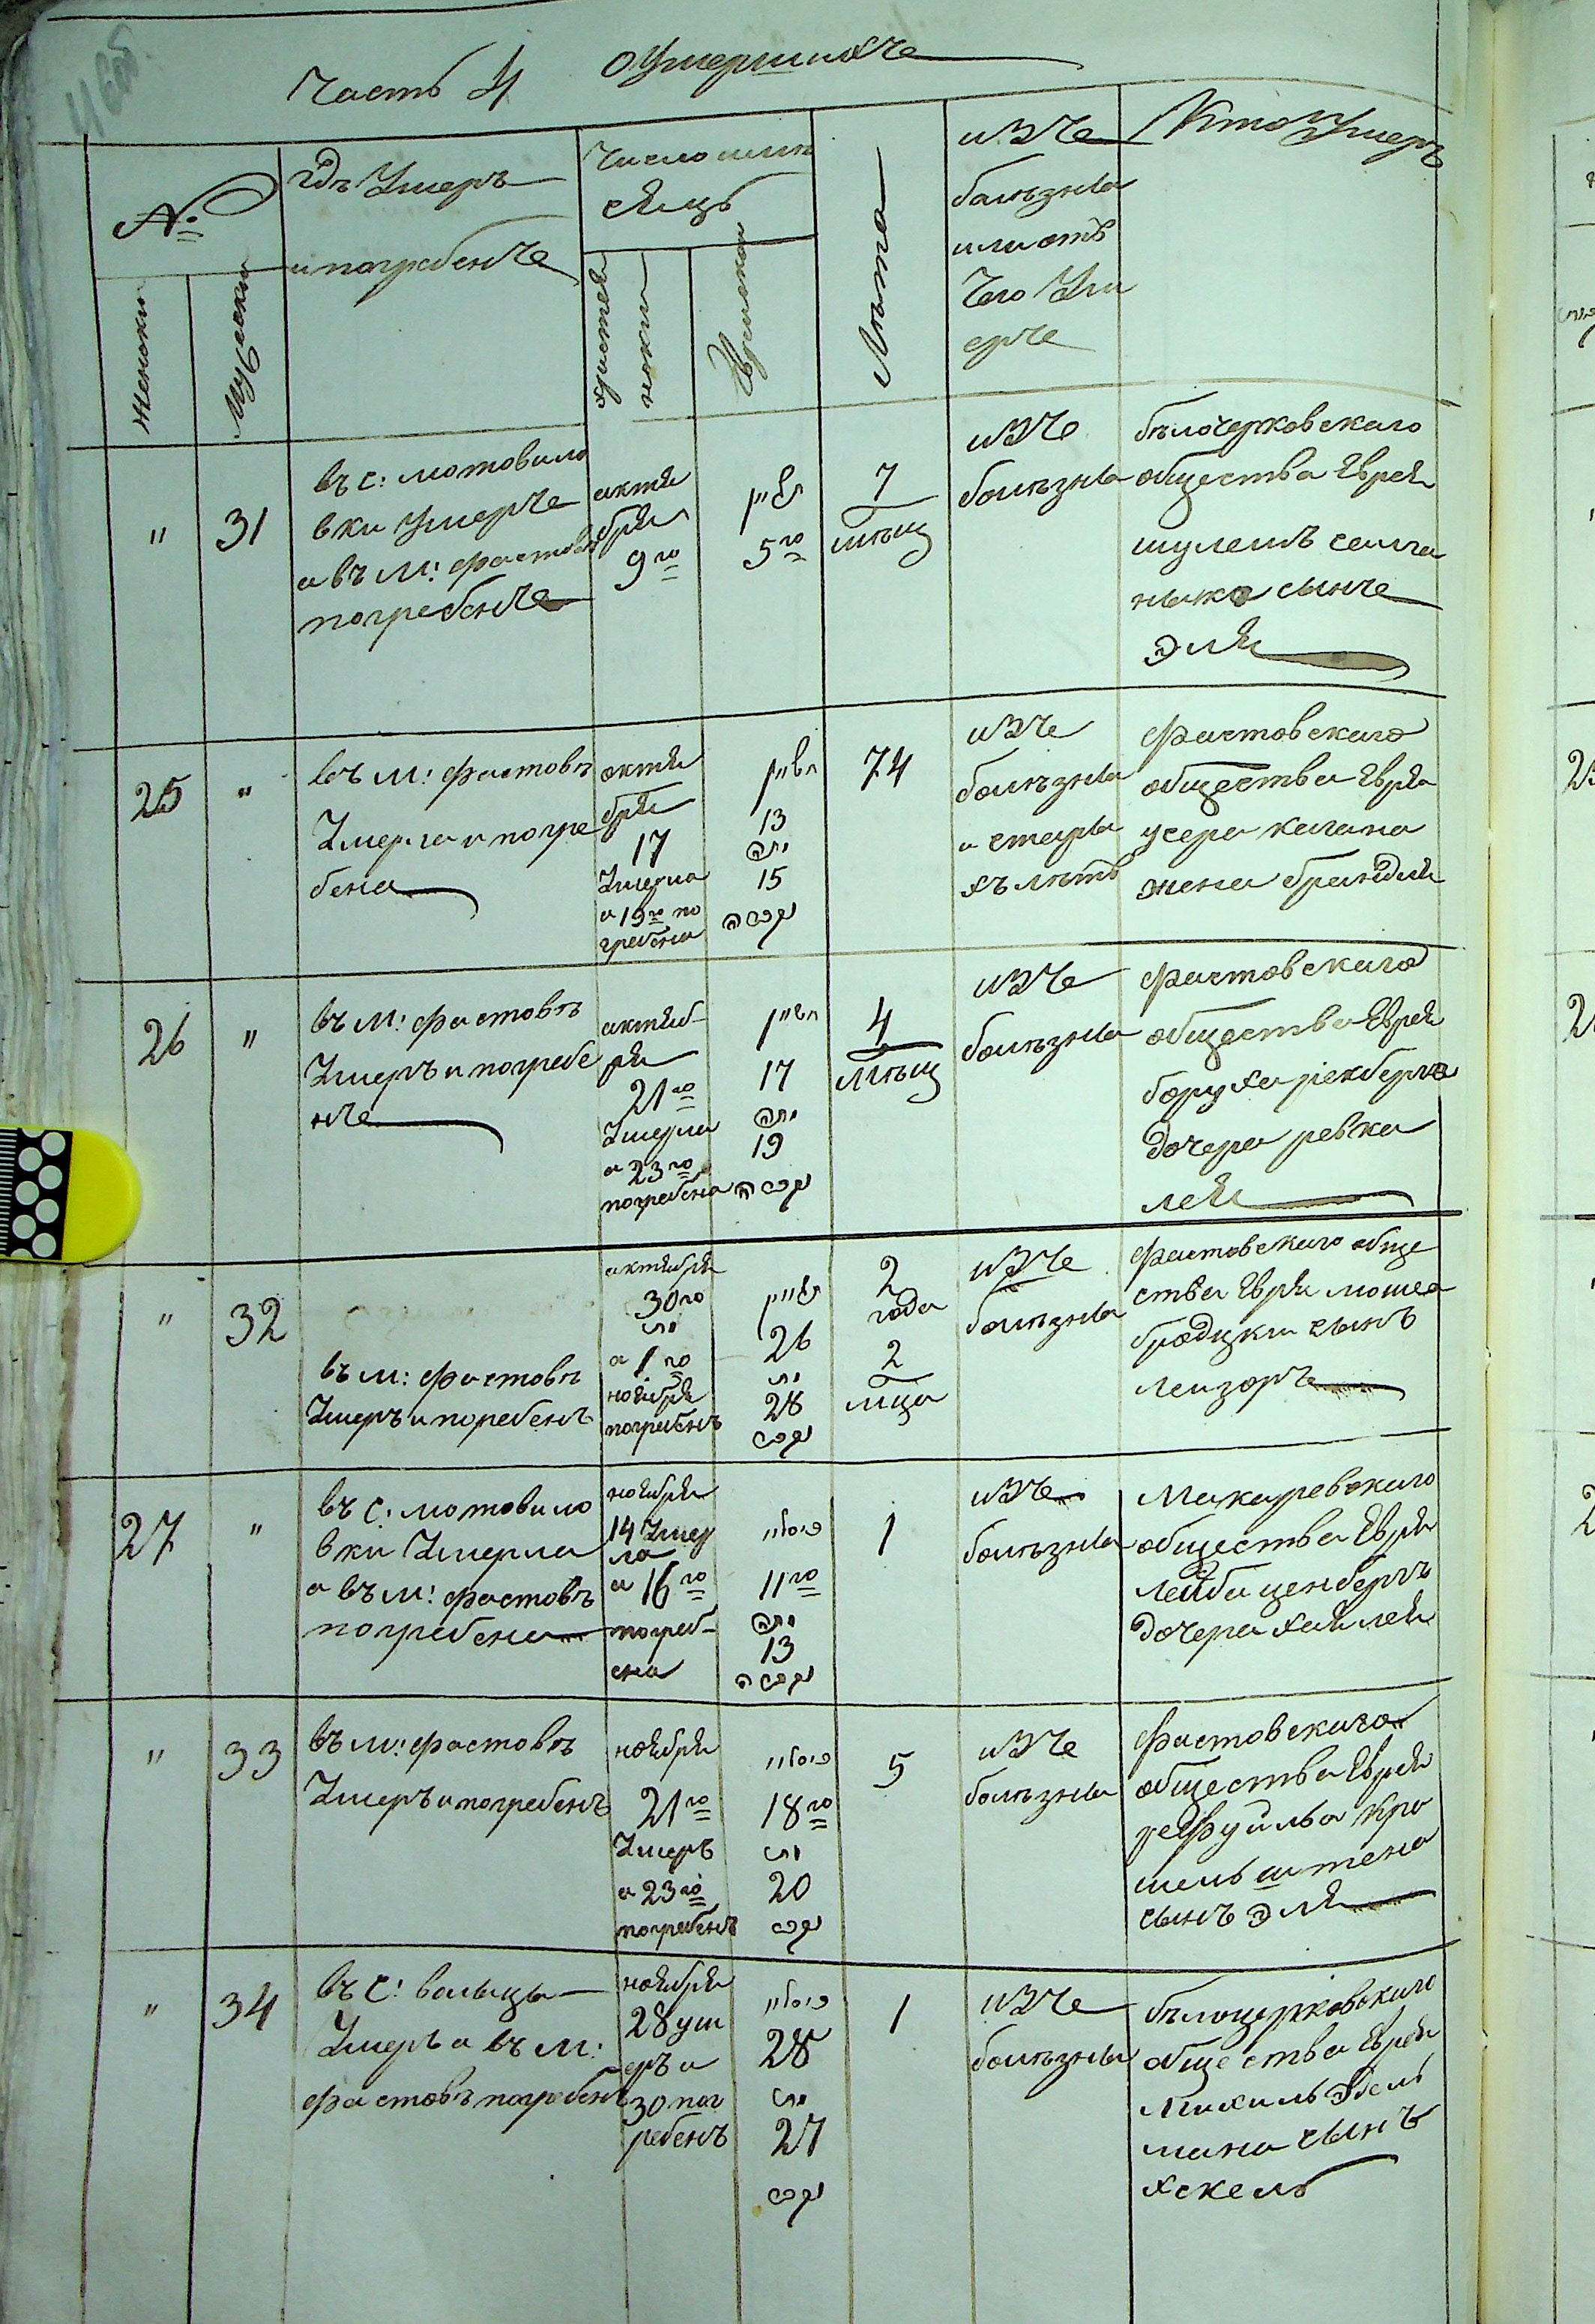 Часть 4 О Умершихъ
№
Женски
Мужески
Гдѣ Умеръ
и погребенъ
Число и мѣ
сяцъ
Христiян
ноки
Еврискои
Лѣта
изъ
болѣзны
или отъ
Чего Уми
еръ
Кто Умеръ
" 31
въ с: мотовило
вки Умеръ
а въ м: фастовѣ
погребенъ
актя
бря
9го
5го
7
мѣц
изъ
болѣзны
бѣлочерковскаго
общества Еврея
шулемъ
сынъ
Эля
25 "
въ м: фастовѣ
Умерла и погре
бена
октя
бря
17
Умерла
а 19го по
гребена
13
15
74
изъ
болѣзны
и стары
хъ лѣтъ
Фастовскаго
общества Еврея
усера кагана
жена брандля
26 "
въ м: фастовѣ
Умеръ и погребе
нъ
актяб-
ря
21го
Умерла
а 23го
погребена
17
19
4
мѣц
изъ
болѣзны
Фастовскаго
общества Еврея
боруха рекберга
дочера ревка
лея
" 32
въ м: фастовѣ
Умеръ и поребенъ
актября
30го
а 1го
ноября
погребенъ
26
28
2
года
2
мца
изъ
болѣзны
Фастовскаго обще
ства Еврея мошеа
бродцки сынъ
Лейзоръ
27 "
въ с: мотовило
вки Умерла
а въ м: фастовѣ
погребена
ноября
14 Умер
ла
а 16го
погреб-
ена
11го
13
1
изъ
болѣзны
Макаревскаго
общества Еврея
Лейба ценбергъ
дочера хая лея
" 33
въ м: фастовѣ
Умеръ и погребенъ
ноября
21го
Умеръ
а 23го
погребенъ
18го
20
5
изъ
болѣзны
Фастовскаго
общества Еврея
Кро
мель штена
сынъ Эля
" 34
въ с: волыцы
Умеръ а въ м:
фастовѣ погребенъ
ноября
28 ум
еръ а
30 пог
ребенъ
28
27
1
изъ
болѣзны
бѣлоцерковскаго
общества Еврея
Михиль Эдель
мана сынъ
хскель